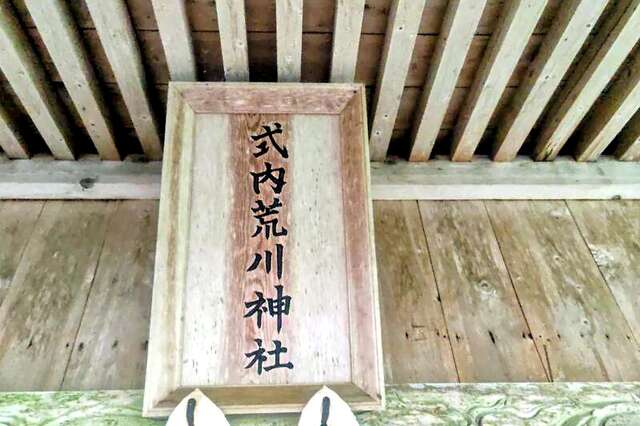 式内荒川神社